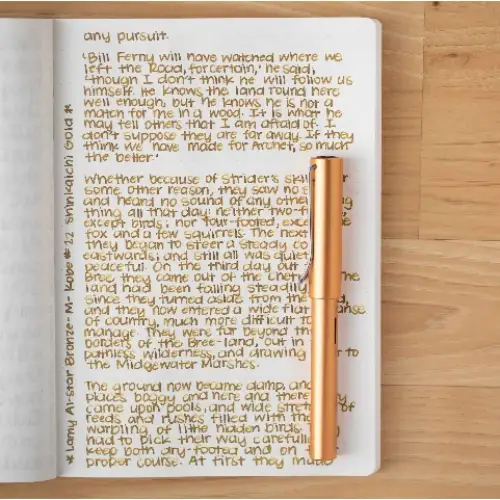 any pursuit.
'Bill Ferny will have watched where we
left the Road, for certain,' he said,
'though I don't think he will follow us
himself. He knows the land round here
well enough, but he knows he is not a
match for me in a wood. It is what he
may tell others that I am afraid of. I
don't suppose they are far away. If they
think we have made for Archet, so much
the better.'
Whether because of Strider's
some other reason, they saw no
and heard no sound of any other
thing all that day: neither
except birds; nor four-footed,
fox and a few squirrels. The next
they began to steer a steady
eastwards; and still all was quiet
peaceful. On the third day out
Bree they came out of the
land had been falling steadily,
since they turned aside from the
and they now entered a wide flat
of country, much more difficult to
manage. They were far beyond the
borders of the Bree-land, out in
pathless wilderness, and drawing to
the Midgewater Marshes.
The ground now became damp, and
places boggy and here and there
came upon pools, and wide of
reeds and rushes filled with the
warbling of little hidden birds.
had to pick their way carefully
keep both dry-footed and on
proper course. At first they made
* Lamy Al-star Bronze - M - Kobe # 22 Shinkaichi Gold *